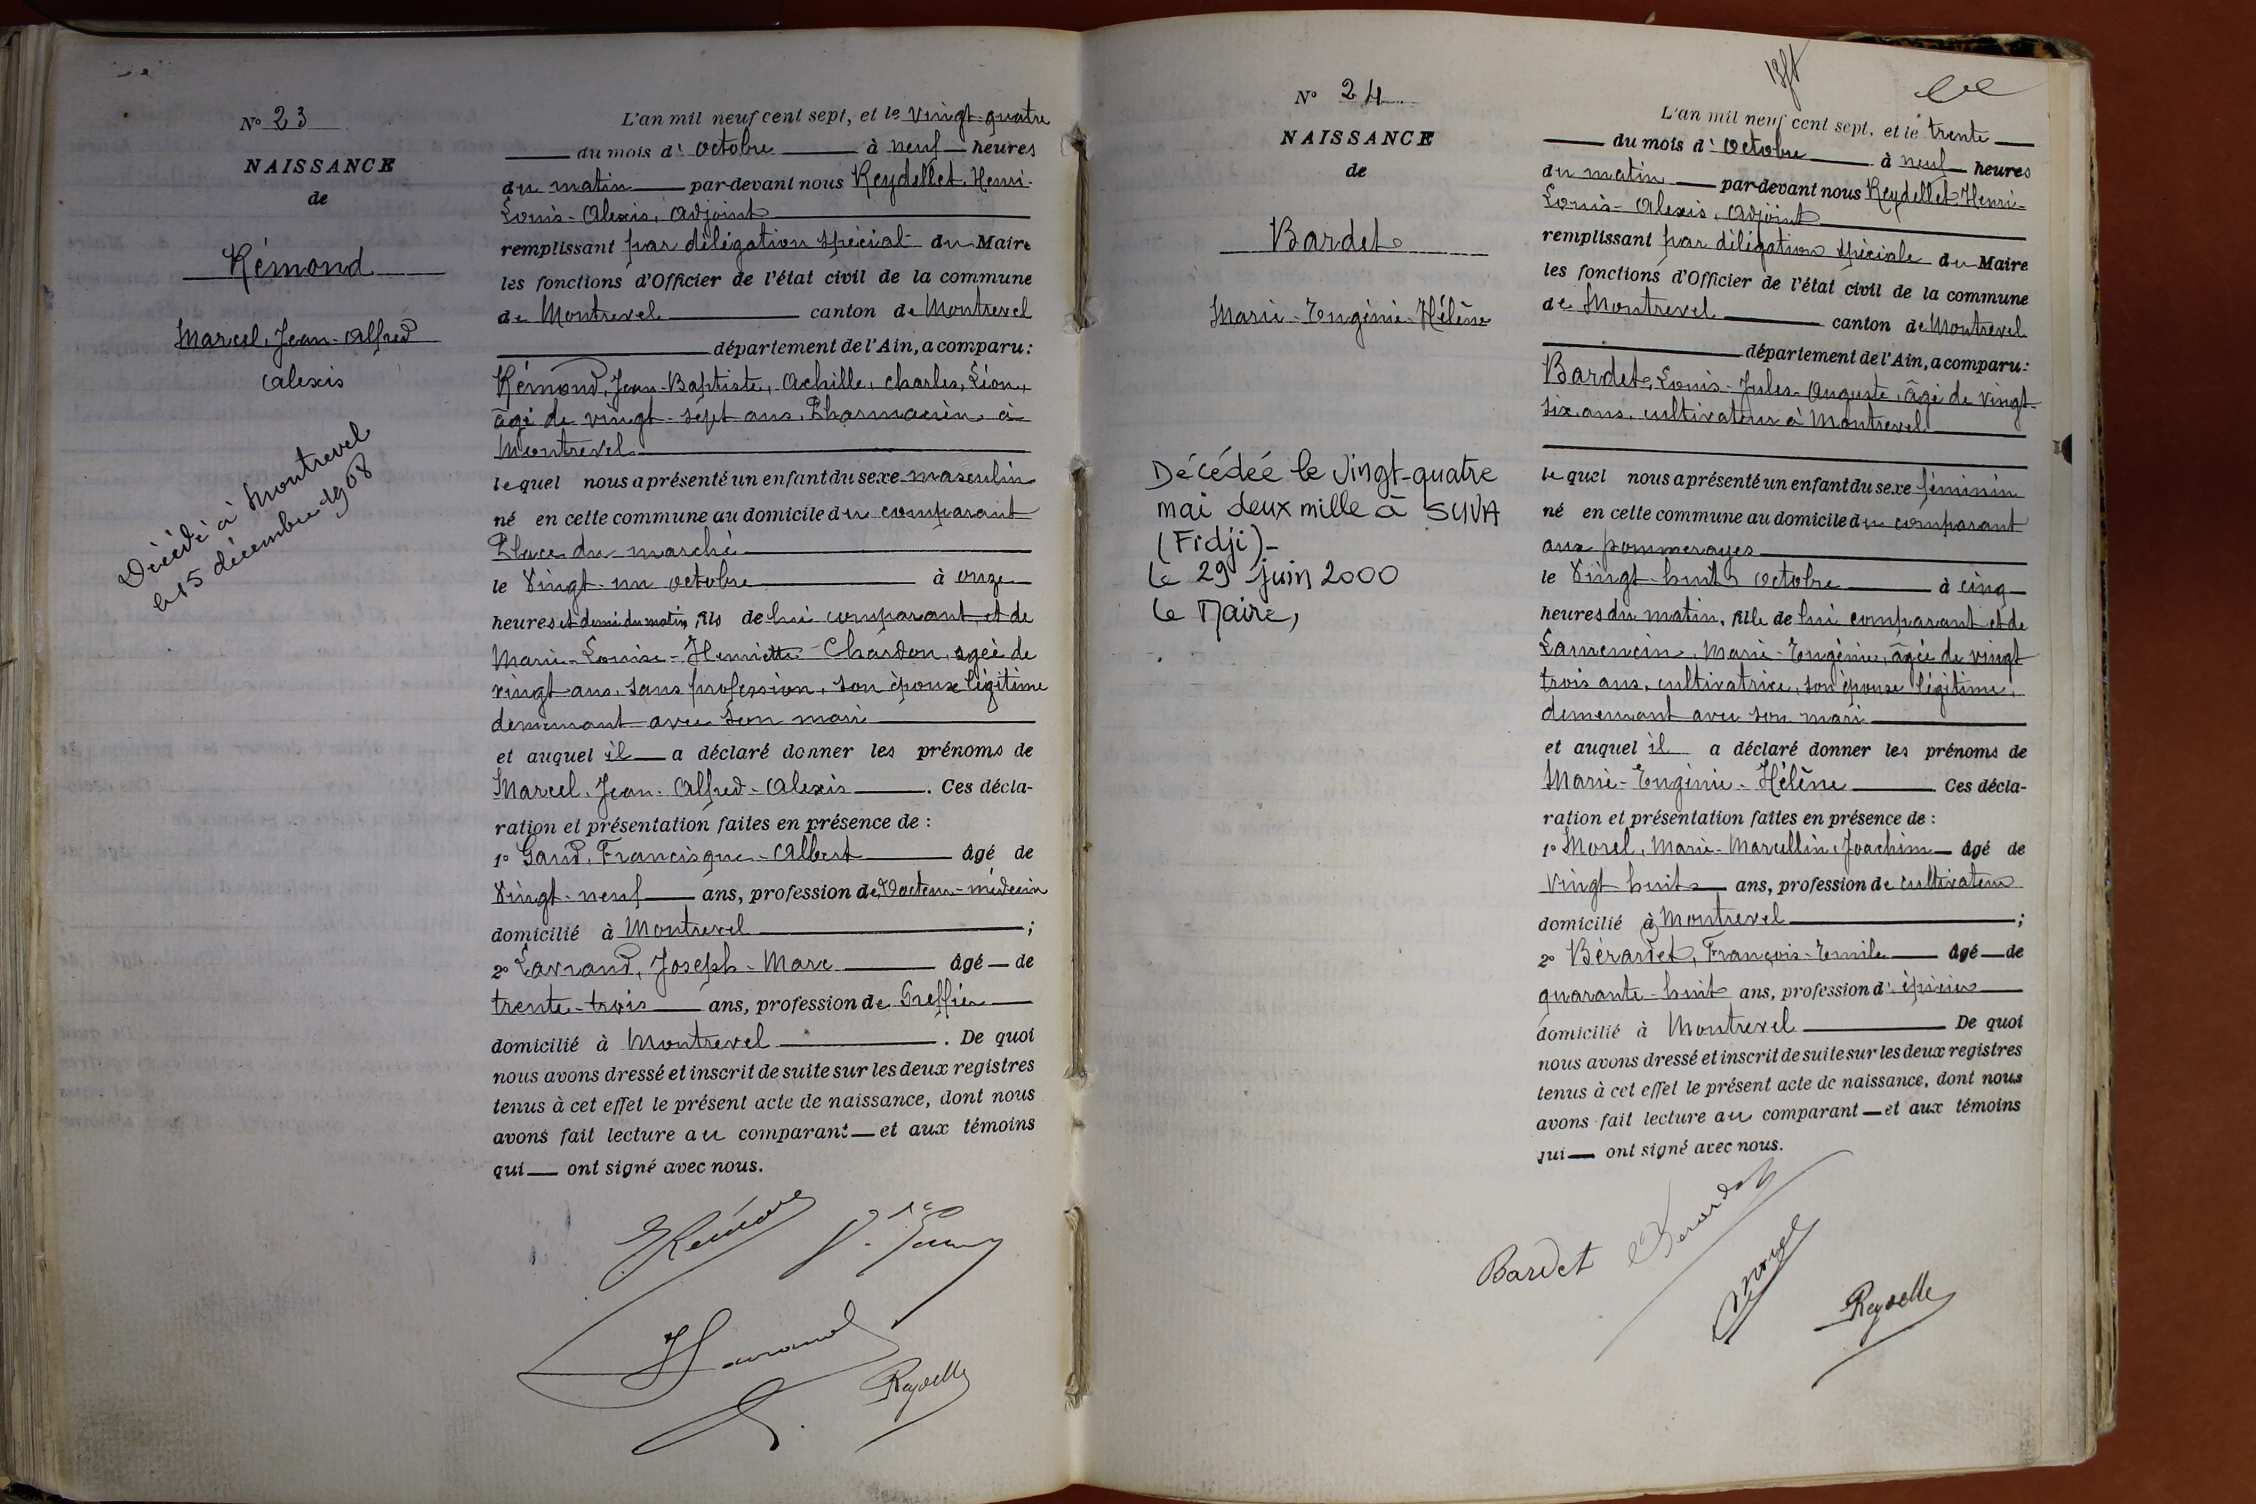 N° 23
NAISSANCE
de
Rémond
Marcel, Jean-Alfred
Alexis
Décédé à Montrevel
le 15 décembre 1968
L'an mil neuf cent sept, et le vingt-quatre
du mois d'octobre à neuf heures
du matin par-devant nous Reydellet, Henri-
Louis-Alexis, adjoint
remplissant par délégation spécial du Maire
les fonctions d'Officier de l'état civil de la commune
de Montrevel canton de Montrevel
département de l'Ain, a comparu:
Rémond, Jean-Baptiste, Achille, Charles, Léon,
âgé de vingt-sept ans, Pharmacien à
Montrevel
lequel nous a présenté un enfant du sexe masculin
né en cette commune au domicile du comparant
Place du marché
le Vingt-un octobre à onze
heures et demi du matin, fils de lui comparant et de
Marie-Louise-Henriette Chardon, agée de
vingt ans, sans profession, son épouse légitime
demeurant avec son mari
et auquel il a déclaré donner les prénoms de
Marcel, Jean-Alfred-Alexis. Ces décla-
ration et présentation faites en présence de :
1° Gand, Francisque-Albert âgé de
Vingt-neuf ans, profession de Docteur-médecin
domicilié à Montrevel ;
2° Lavrand, Joseph-Marc âgé de
trente-trois ans, profession de Greffier
domicilié à Montrevel. De quoi
nous avons dressé et inscrit de suite sur les deux registres
tenus à cet effet le présent acte de naissance, dont nous
avons fait lecture au comparant et aux témoins
qui ont signé avec nous.
Reydelle
N° 24
NAISSANCE
de
Bardet
Marie-Eugénie-Hélène
Décédée le vingt-quatre
mai deux mille à SUVA
(Fidji)-
Le 29 juin 2000
Le Maire,
L'an mil neuf cent sept, et le trente
du mois d'octobre à neuf heures
du matin par-devant nous Reydellet Henri-
Louis-Alexis, adjoint
remplissant par délégation spéciale du Maire
les fonctions d'Officier de l'état civil de la commune
de Montrevel canton de Montrevel
département de l'Ain, a comparu:
Bardet, Louis-Jules-Auguste, âgé de vingt-
six ans, cultivateur à Montrevel
lequel nous a présenté un enfant du sexe féminin
né en cette commune au domicile du comparant
aux pommerayes
le Vingt-huit octobre à cinq
heures du matin, fille de lui comparant et de
Lamencin, Marie-Eugénie, âgée de vingt
trois ans, cultivatrice, son épouse légitime,
demeurant avec son mari
et auquel il a déclaré donner les prénoms de
Marie-Eugénie-Hélène Ces décla-
ration et présentation faites en présence de :
1° Morel, Marie-Marcellin, Joachim âgé de
Vingt huit ans, profession de cultivateur
domicilié à Montrevel ;
2° Bérardet, François-Emile âgé de
quarante-huit ans, profession d'épicier
domicilié à Montrevel De quoi
nous avons dressé et inscrit de suite sur les deux registres
tenus à cet effet le présent acte de naissance, dont nous
avons fait lecture au comparant et aux témoins
qui ont signé avec nous.
Bardet Berardet
Morel
Reydelle